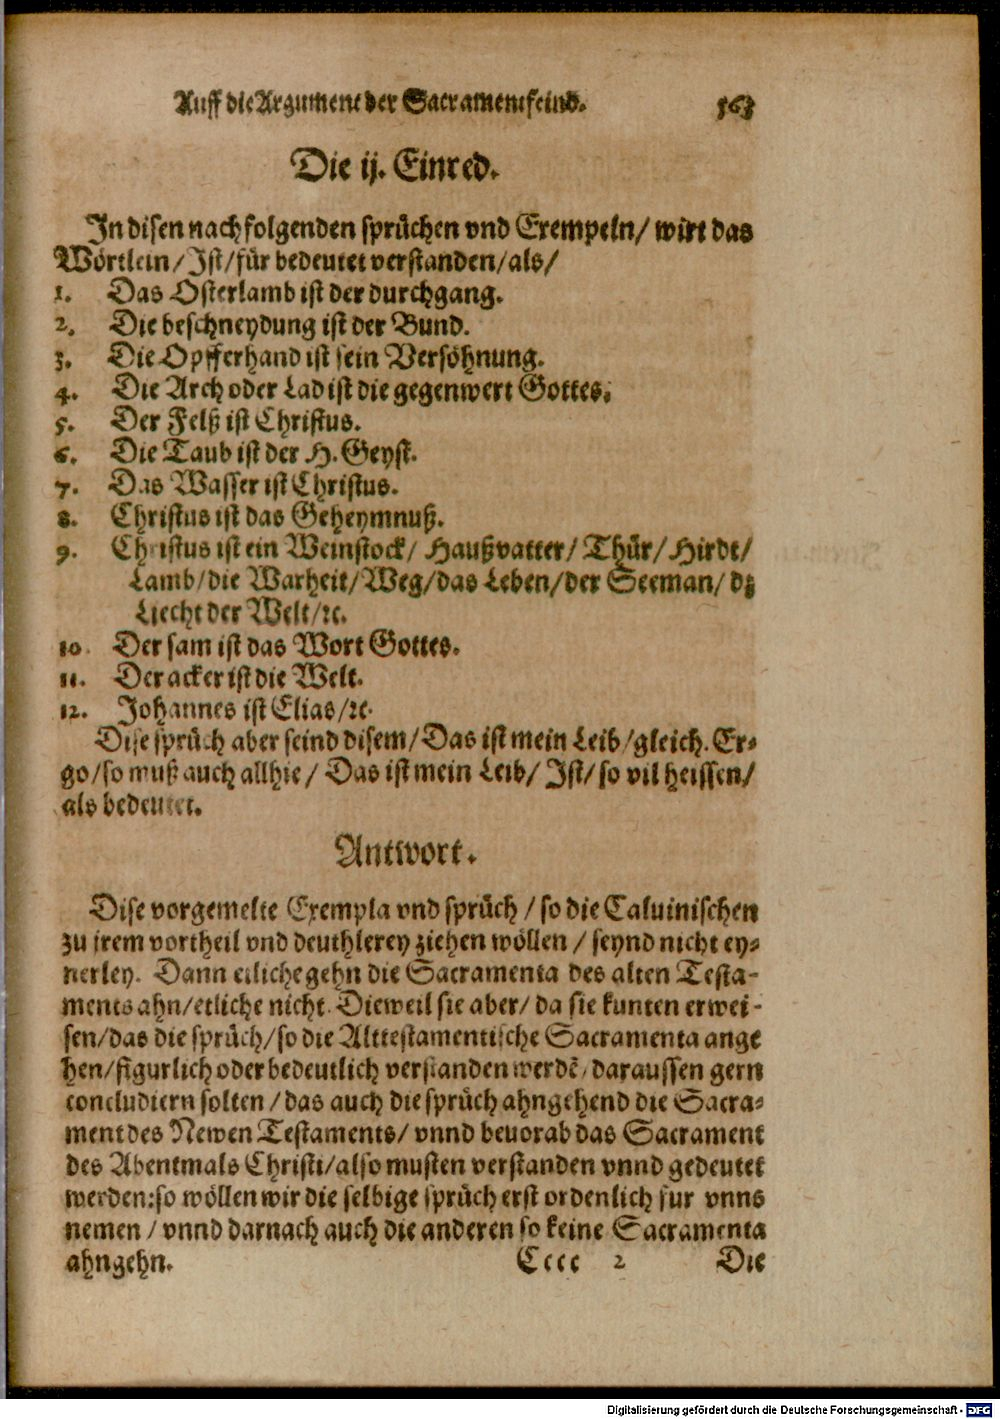 Auff die Argument der Sacramentsfeind. 163
Die ij. Einred.
In disen nachfolgenden sprüchen vnd Exempeln/ wirt das
Wörtlein/ Ist/ für bedeutet verstanden/ als/
1. Das Osterlamb ist der durchgang.
2. Die beschneydung ist der Bund.
3. Die Opfferhand ist sein Versöhnung.
4. Die Arch oder Lad ist die gegenwert Gottes.
5. Der Felß ist Christus.
6. Die Taub ist der H. Geyst.
7. Das Wasser ist Christus.
8. Christus ist das Geheymnuß.
9. Christus ist ein Weinstock/ Haußvatter/ Thür/ Hirdt/
Lamb/ die Warheit/ Weg/ das Leben/ der Seeman/ dz
Liecht der Welt/ ꝛc.
10. Der sam ist das Wort Gottes.
11. Der acker ist die Welt.
12. Johannes ist Elias/ ꝛc.
Dise sprüch aber seind disem/ Das ist mein Leib/ gleich. Er-
go/ so muß auch allhie/ Das ist mein Leib/ Ist/ so vil heissen/
als bedeutet.
Antwort.
Dise vorgemelte Exempla vnd sprüch/ so die Caluinischen
zu jrem vortheil vnd deuthlerey ziehen wöllen/ seynd nicht ey-
nerley. Dann etliche gehn die Sacramenta des alten Testa-
ments ahn/ etliche nicht. Dieweil sie aber/ da sie kunten erwei-
sen/ das die sprüch/ so die Alttestamentische Sacramenta ange
hen/ figurlich oder bedeutlich verstanden werdẽ/ daraussen gern
concludiern solten/ das auch die sprüch ahngehend die Sacra-
ment des Newen Testaments/ vnnd beuorab das Sacrament
des Abentmals Christi/ also musten verstanden vnnd gedeutet
werden: so wöllen wir die selbige sprüch erst ordenlich fur vnns
nemen/ vnnd darnach auch die anderen so keine Sacramenta
ahngehn. Cccc 2 Die
Digitalisierung gefördert durch die Deutsche Forschungsgemeinschaft - DFG